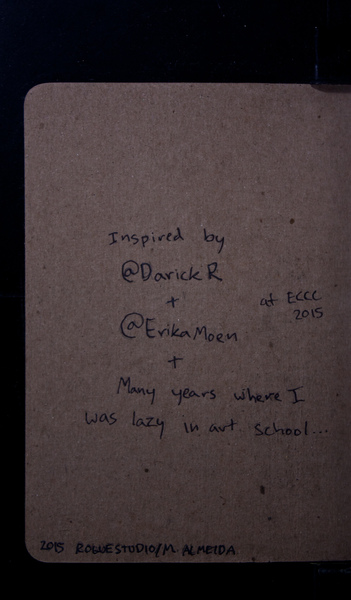 Inspired by
@DarickR
+
@ErikaMoen
at ECCC
2015
+
Many years where I
was lazy in art school...
2015 ROGUESTUDIO/M. ALMEIDA